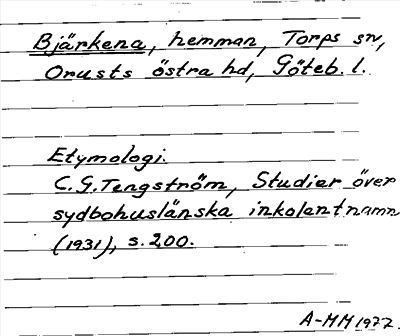 Bjärkena, hemman, Torps sn,
Orusts östra hd, Göteb. l.
Etymologi.
C.G. Tengström, Studier över
sydbohuslänska inkolentnamn
(1931), s. 200.
A-MM 1977.